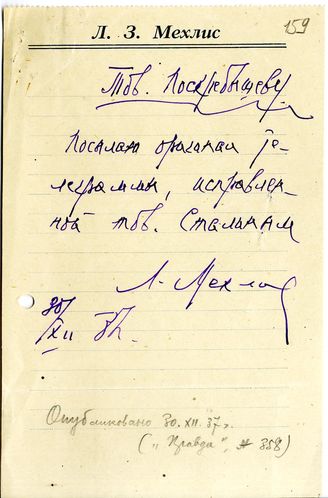 159
Л. З. Мехлис
Тов. Поскребышеву
Посылаю оригинал те-
леграммы, исправлен-
ной тов. Сталиным
Л. Мехлис
30/XII 37.
Опубликовано 30.XII.37г.
("Правда", № 358)